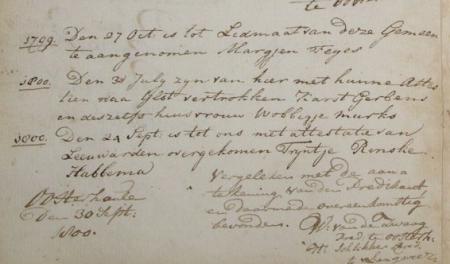 1799. Den 27 Oct is tot Ledmaat van deze Gemeen
te aangenomen Margjen Feyes
1800. Den 3 July zyn van hier met hunne Attes
tien naa Ylst vertrokken Karst Gerbens
en deszelfs huisvrouw Wobbigje murks
1800. Den 24 Sept. is tot ons met attestatie van
Leeuwarden overgekomen Tryntje Rinske
Habbema
Oosterhaule
Den 30 Sept.
1800.
Vergeleken met de aan
tekening van den Predikant,
en daarmede overeenkomstig
bevonden.
W. van der
pred. te Oosterh.
H.